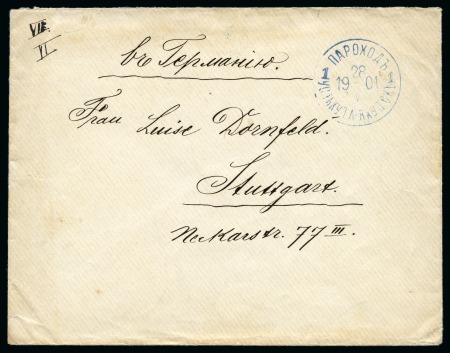 VII
VI
въ Германію.
ПАРОХОДЪ
28
19 01
1 1
Frau Luise Dornfeld.
Stuttgart.
Neckarstr. 77 III.